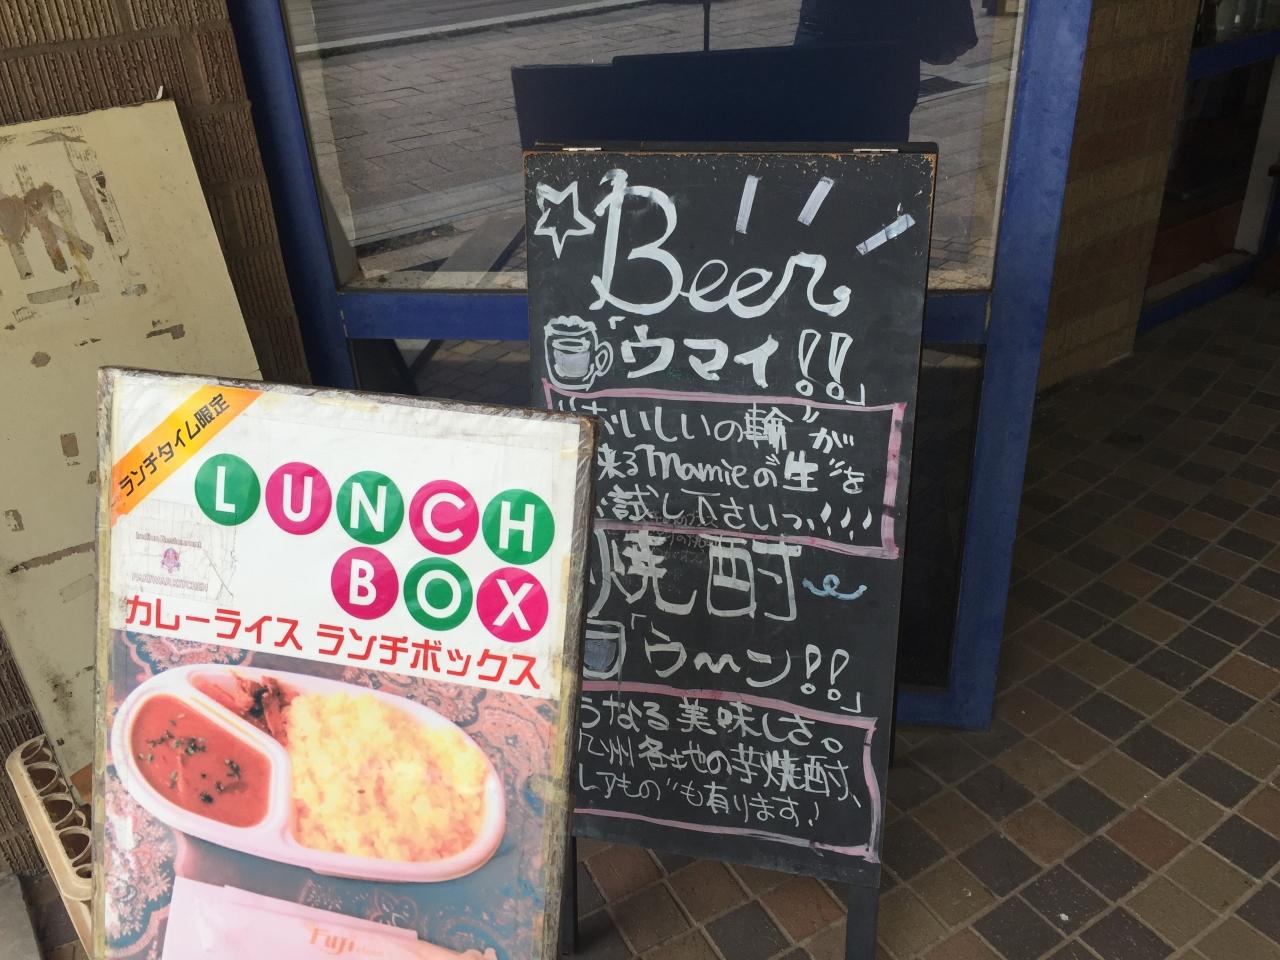 ランチタイム限定
LUNCH
BOX
Indian Restaurant
PARIWAR KITCHEN
カレーライス ランチボックス
Fuji
Beer
「ウマイ!!」
おいしいの輪”が
来るMamieの“生”を
試し下さいっ!!!
焼酎
「う〜ン!!」
うなる美味しさ。
九州各地の芋焼酎、
しすもの”も有ります!